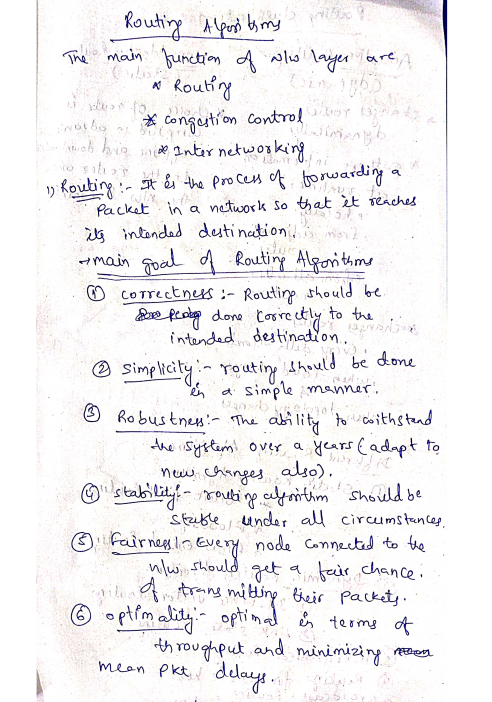 Routing Algorithms
The main function of N/w layer are
* Routing
* congestion control
* Inter networking
1) Routing :- It is the process of forwarding a
Packet in a network so that it reaches
its intended destination.
→ main goal of Routing Algorithms
① correctness :- Routing should be
done correctly to the
intended destination.
② Simplicity :- routing should be done
in a simple manner.
③ Robustness :- The ability to withstand
the system over a years (adapt to
new changes also).
④ stability :- routing algorithm should be
stable under all circumstances.
⑤ Fairness :- Every node connected to the
n/w should get a fair chance.
of transmitting their packets.
⑥ optimality :- optimal in terms of
throughput and minimizing
mean pkt delays.